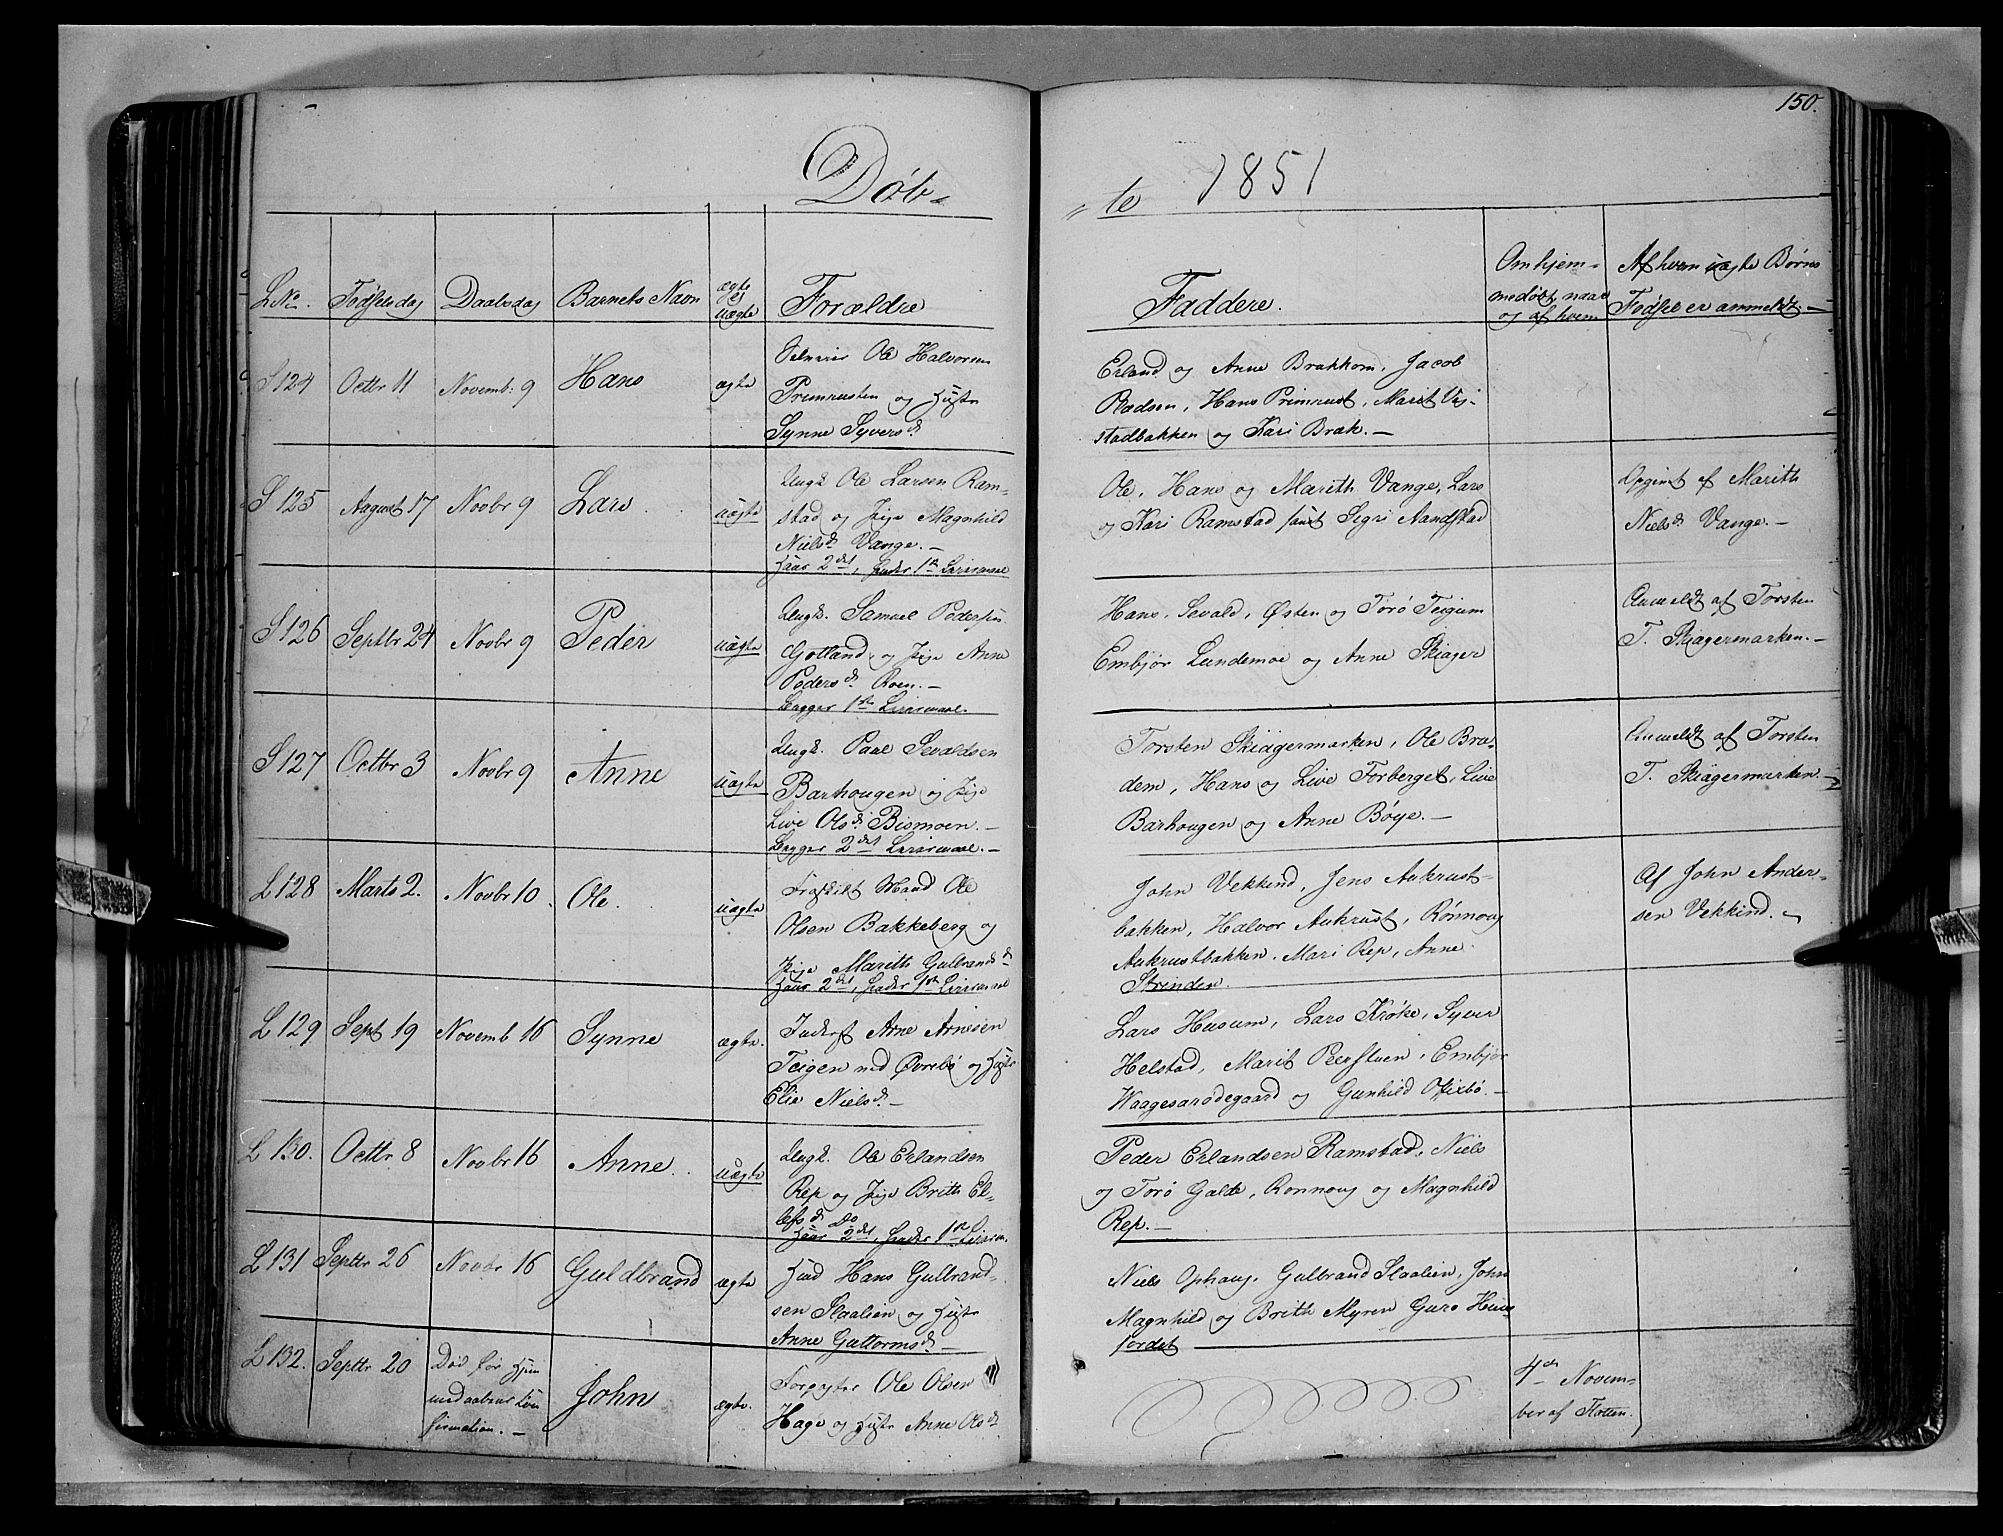 150.
Døb-
te 1851
L No.
Fødselsdag
Daabsdag
Barnets Navn
ægte
el
uægte
Forældre
Faddere.
Omhjem-
medøbt naar
og af hvem
Af hvem uægte Børns
Fødsel er anmeldt.-
S 124
Octbr 11
Novemb: 9
Hans
ægte
Ole Halvorsen
Primrusten og Hustr
Synne Syversd.
Erland og Anne Brækkom, Jacob
Rædsen, Hans Primrust, Marit Vis-
stadbakken og Kari Bræk.-
S 125
August 17
Novbr 9
Lars
uægte
Ungk. Ole Larsen Ram-
stad og Pige Magnhild
Nielsd. Vange.-
Hans 2det, hendes 1ste Leiermaal
Ole, Hans og Marith Vange, Lars
og Kari Ramstad samt Sigri Aandstad
Opgivet af Marith
Nielsd. Vange.-
S 126
Septbr 24
Novbr 9
Peder
uægte
Ungk. Samuel Pedersen
Gotland og Pige Anne
Pedersd. Roen.-
Begges 1ste Leiermaal.
Hans, Sevald, Østen og Torø Teigum
Embjør Lundemoe og Anne Skiager
Anmeldt af Torsten
T. Skiagermarken.-
S 127
Octbr 3
Novbr 9
Anne
uægte
Ungk. Paul Sevaldsen
Barhougen og Pige
Live Olsd. Bismoen.-
Begges 2det Leiermaal.-
Torsten Skiagermarken, Ole Bræ-
dem, Hans og Live Forberget, Live
Barhougen og Anne Bøye.-
Anmeldt af Torsten
T. Skiagermarken.-
L 128
Marts 2.
Novbr 10.
Ole.
uægte
Fraskilt Mand Ole
Olsen Bakkeberg og
Pige Marith Gulbrandsd
Hans 2det, hendes 1ste Leiermaal
John Vekkind, Jens Aukrust-
bakken, Halvor Aukrust, Rønnoug
Aukrustbakken, Mari Rep, Anne
Strinden.
Af John Ander-
sen Vekkind.-
L 129
Sept 19
Novemb 16
Synne
ægte.
Inderst Arne Arnesen
Teigen ned Øvrebø og Hustr
Elie Nielsd.-
Lars Husum, Lars Krøke, Syver
Helstad, Marit Peerstuen, Embjør
Waagesarødegaard og Gunhild Ofixbø.-
L 130.
Octbr 8
Novbr 16
Anne
uægte
Ungk. Ole Erlandsen
Rep og Pige Brith El-
lefsd. Do
Hans 2det, hendes 1ste Leierm.
Peder Erlandsen Ramstad, Niels
og Torø Galde, Ronnoug og Magnhild
Rep.-
L 131
Septbr 26
Novbr 16
Guldbrand
ægte
Hmd Hans Gulbrand-
sen Slaalien og Hustr
Anne Guttormsd.-
Niels Ophaug, Gulbrand Slaalien, John
Magnhild og Brith Myren Guro
jordet
L 132.
Septbr 20
Død før Hjem-
medaabens Con
firmation.-
John
ægte.
Ole Olsen
Hage og Hustr Anne Olsd.
4de Novem-
ber af Flotten.